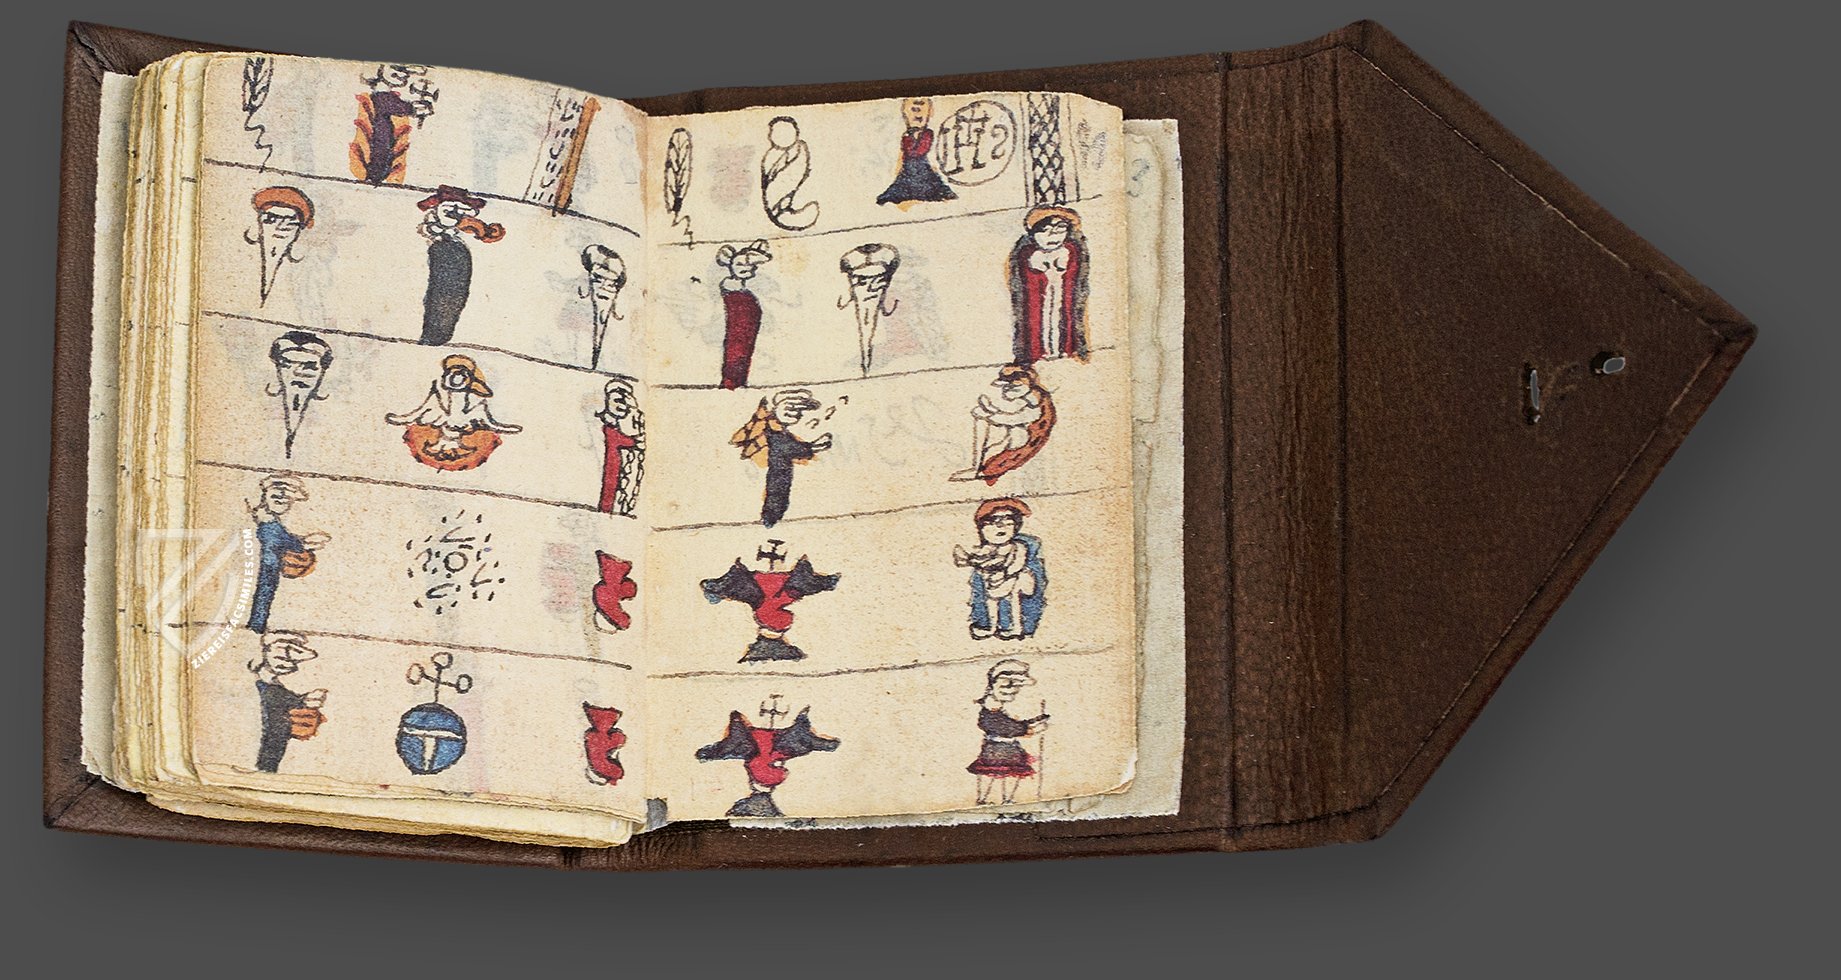 IHS
ZIEREISFACSIMILES.COM